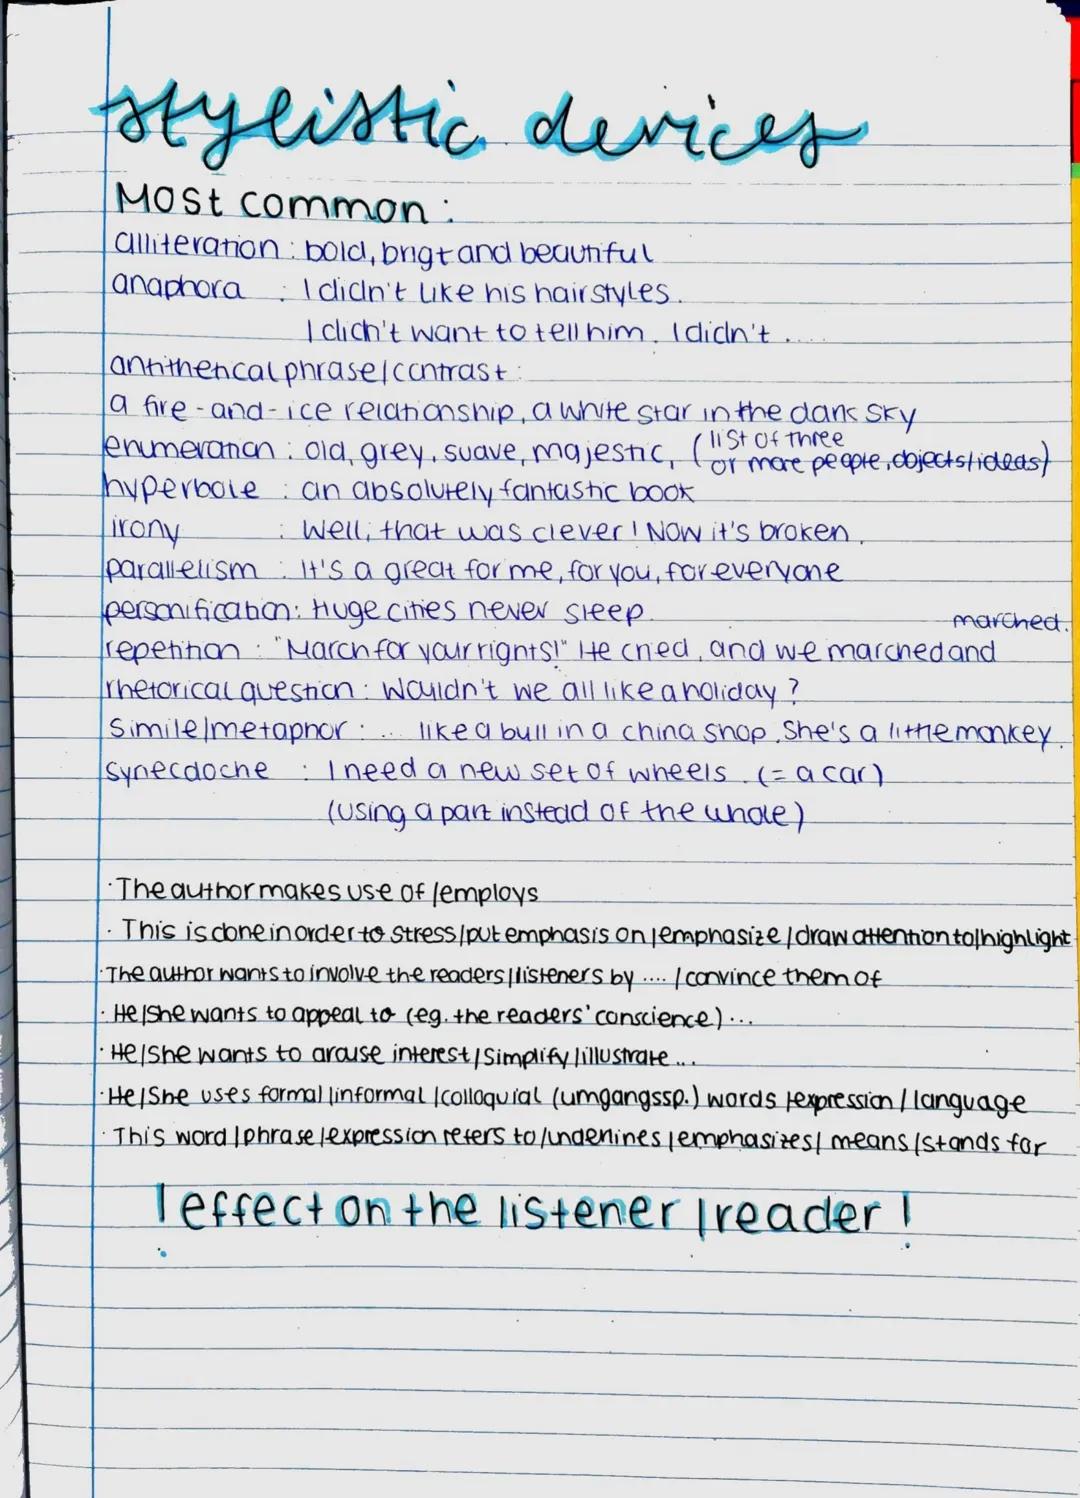 stylistic devices
Most common :
alliteration : bold, brigt and beautiful
anaphora : I didn't like his hairstyles.
I didn't want to tell him. I didn't .....
antithetical phrase/contrast :
a fire-and-ice relationship, a white star in the dark sky
enumeration : old, grey, suave, majestic, (list of three
or more people, objects/ideas)
hyperbole : an absolutely fantastic book
irony : Well, that was clever! Now it's broken.
parallelism : It's a great for me, for you, for everyone
personification: Huge cities never sleep.
marched.
repetition : "March for your rights!" He cried, and we marched and
rhetorical question : Wouldn't we all like a holiday ?
Simile/metaphor : ... like a bull in a china shop. She's a little monkey.
synecdoche : I need a new set of wheels. (= a car)
(using a part instead of the whole)
· The author makes use of /employs
· This is done in order to stress/put emphasis on/emphasize/draw attention to/highlight
· The author wants to involve the readers/listeners by .... / convince them of
· He/She wants to appeal to (eg. the readers' conscience)...
· He/She wants to arouse interest/simplify/illustrate ...
· He/She uses formal/informal/colloquial (umgangssp.) words/expression/language
· This word/phrase/expression refers to/underlines/emphasizes/means/stands for
! effect on the listener/reader !